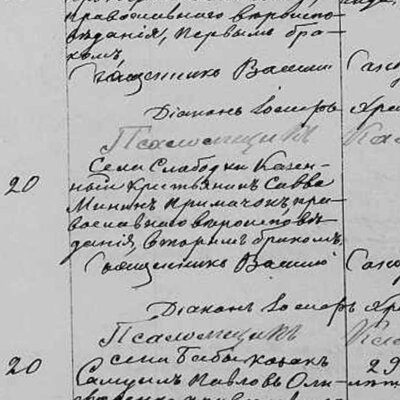 православнаго вѣроиспо-
вѣданія, первымъ бра-
комъ,
Священникъ Василій
Діаконъ Іосифъ
Псаломщикъ
Села Слободки Казен-
20 ный крестьянинъ Савва
Мининъ Примачокъ, пра-
вославнаго вѣроисповѣ-
данія, вторымъ бракомъ,
Священникъ Василій
Діаконъ Іосифъ
Псаломщикъ
20 села Бабы казакъ 29
Самуилъ Павловъ